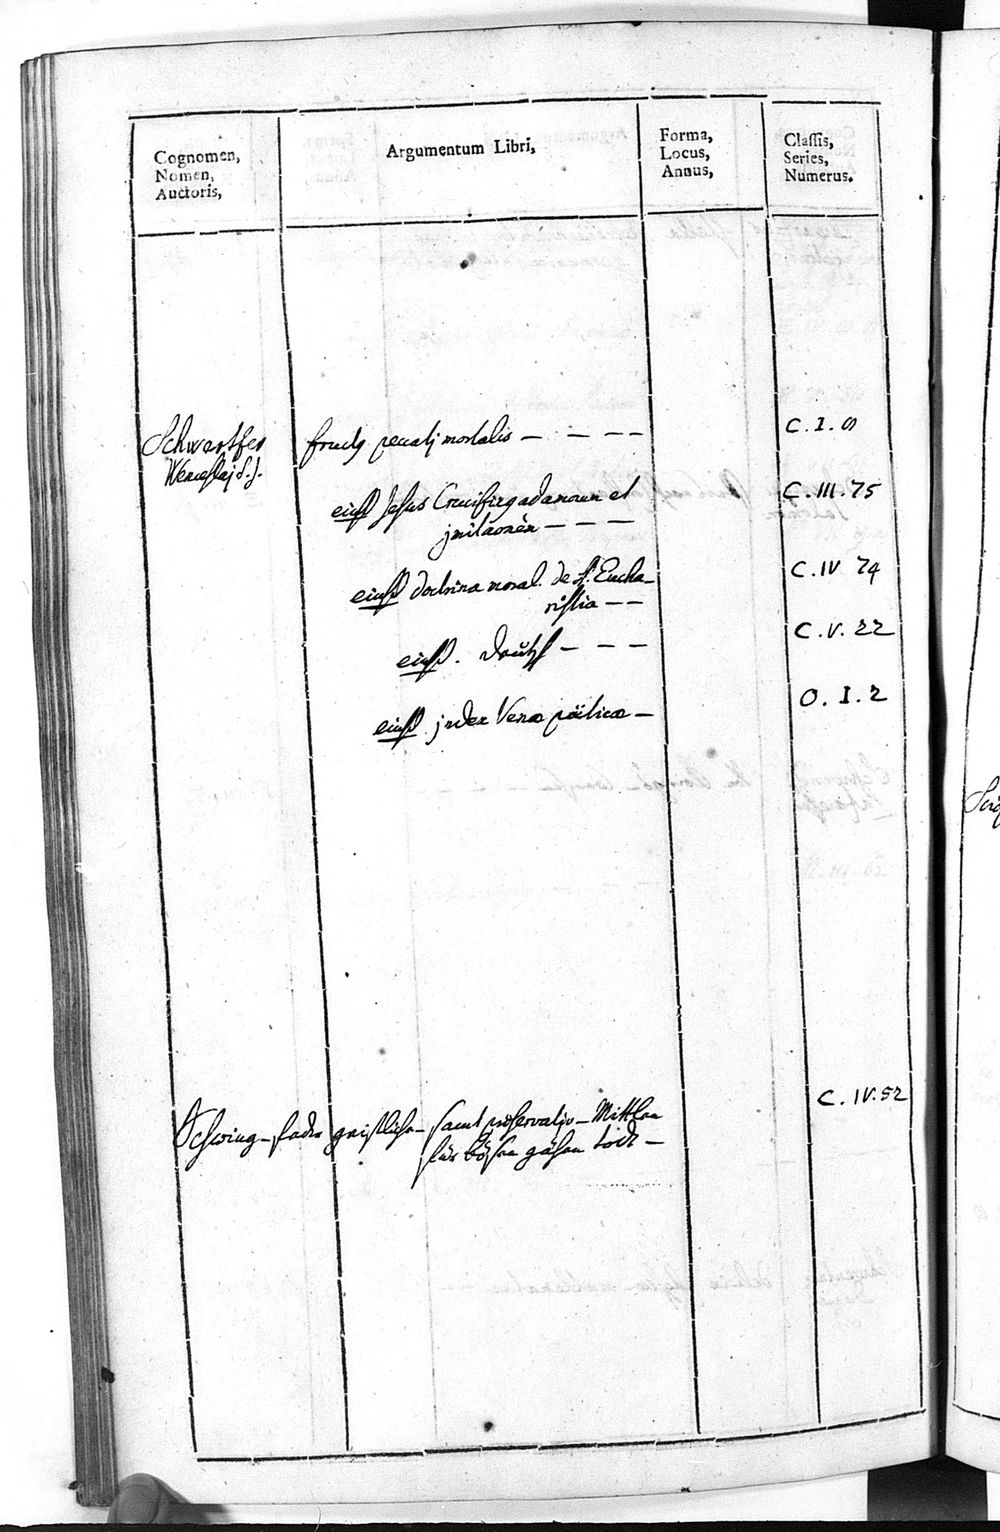 Cognomen,
Nomen,
Auctoris,
Argumentum Libri,
Forma,
Locus,
Annus,
Classis,
Series,
Numerus.
Schwertfer
Wenceslaj S.J.
fructq peccatj mortalis — — — —
C. I. 9
eiusd Jesus Crucifixq ad amorem et
C. III. 75
jmitaonem — — —
eiusd doctrina moral. de S. Eucha-
C. IV 74
ristia — —
eiusd. deütsch — — —
C. V. 22
eiusd jndex Venæ poëticæ —
O. I. 2
Schwing-feder geistliche- samt præservativ-Mittlen
C. IV. 52
für bösen gähen todt —